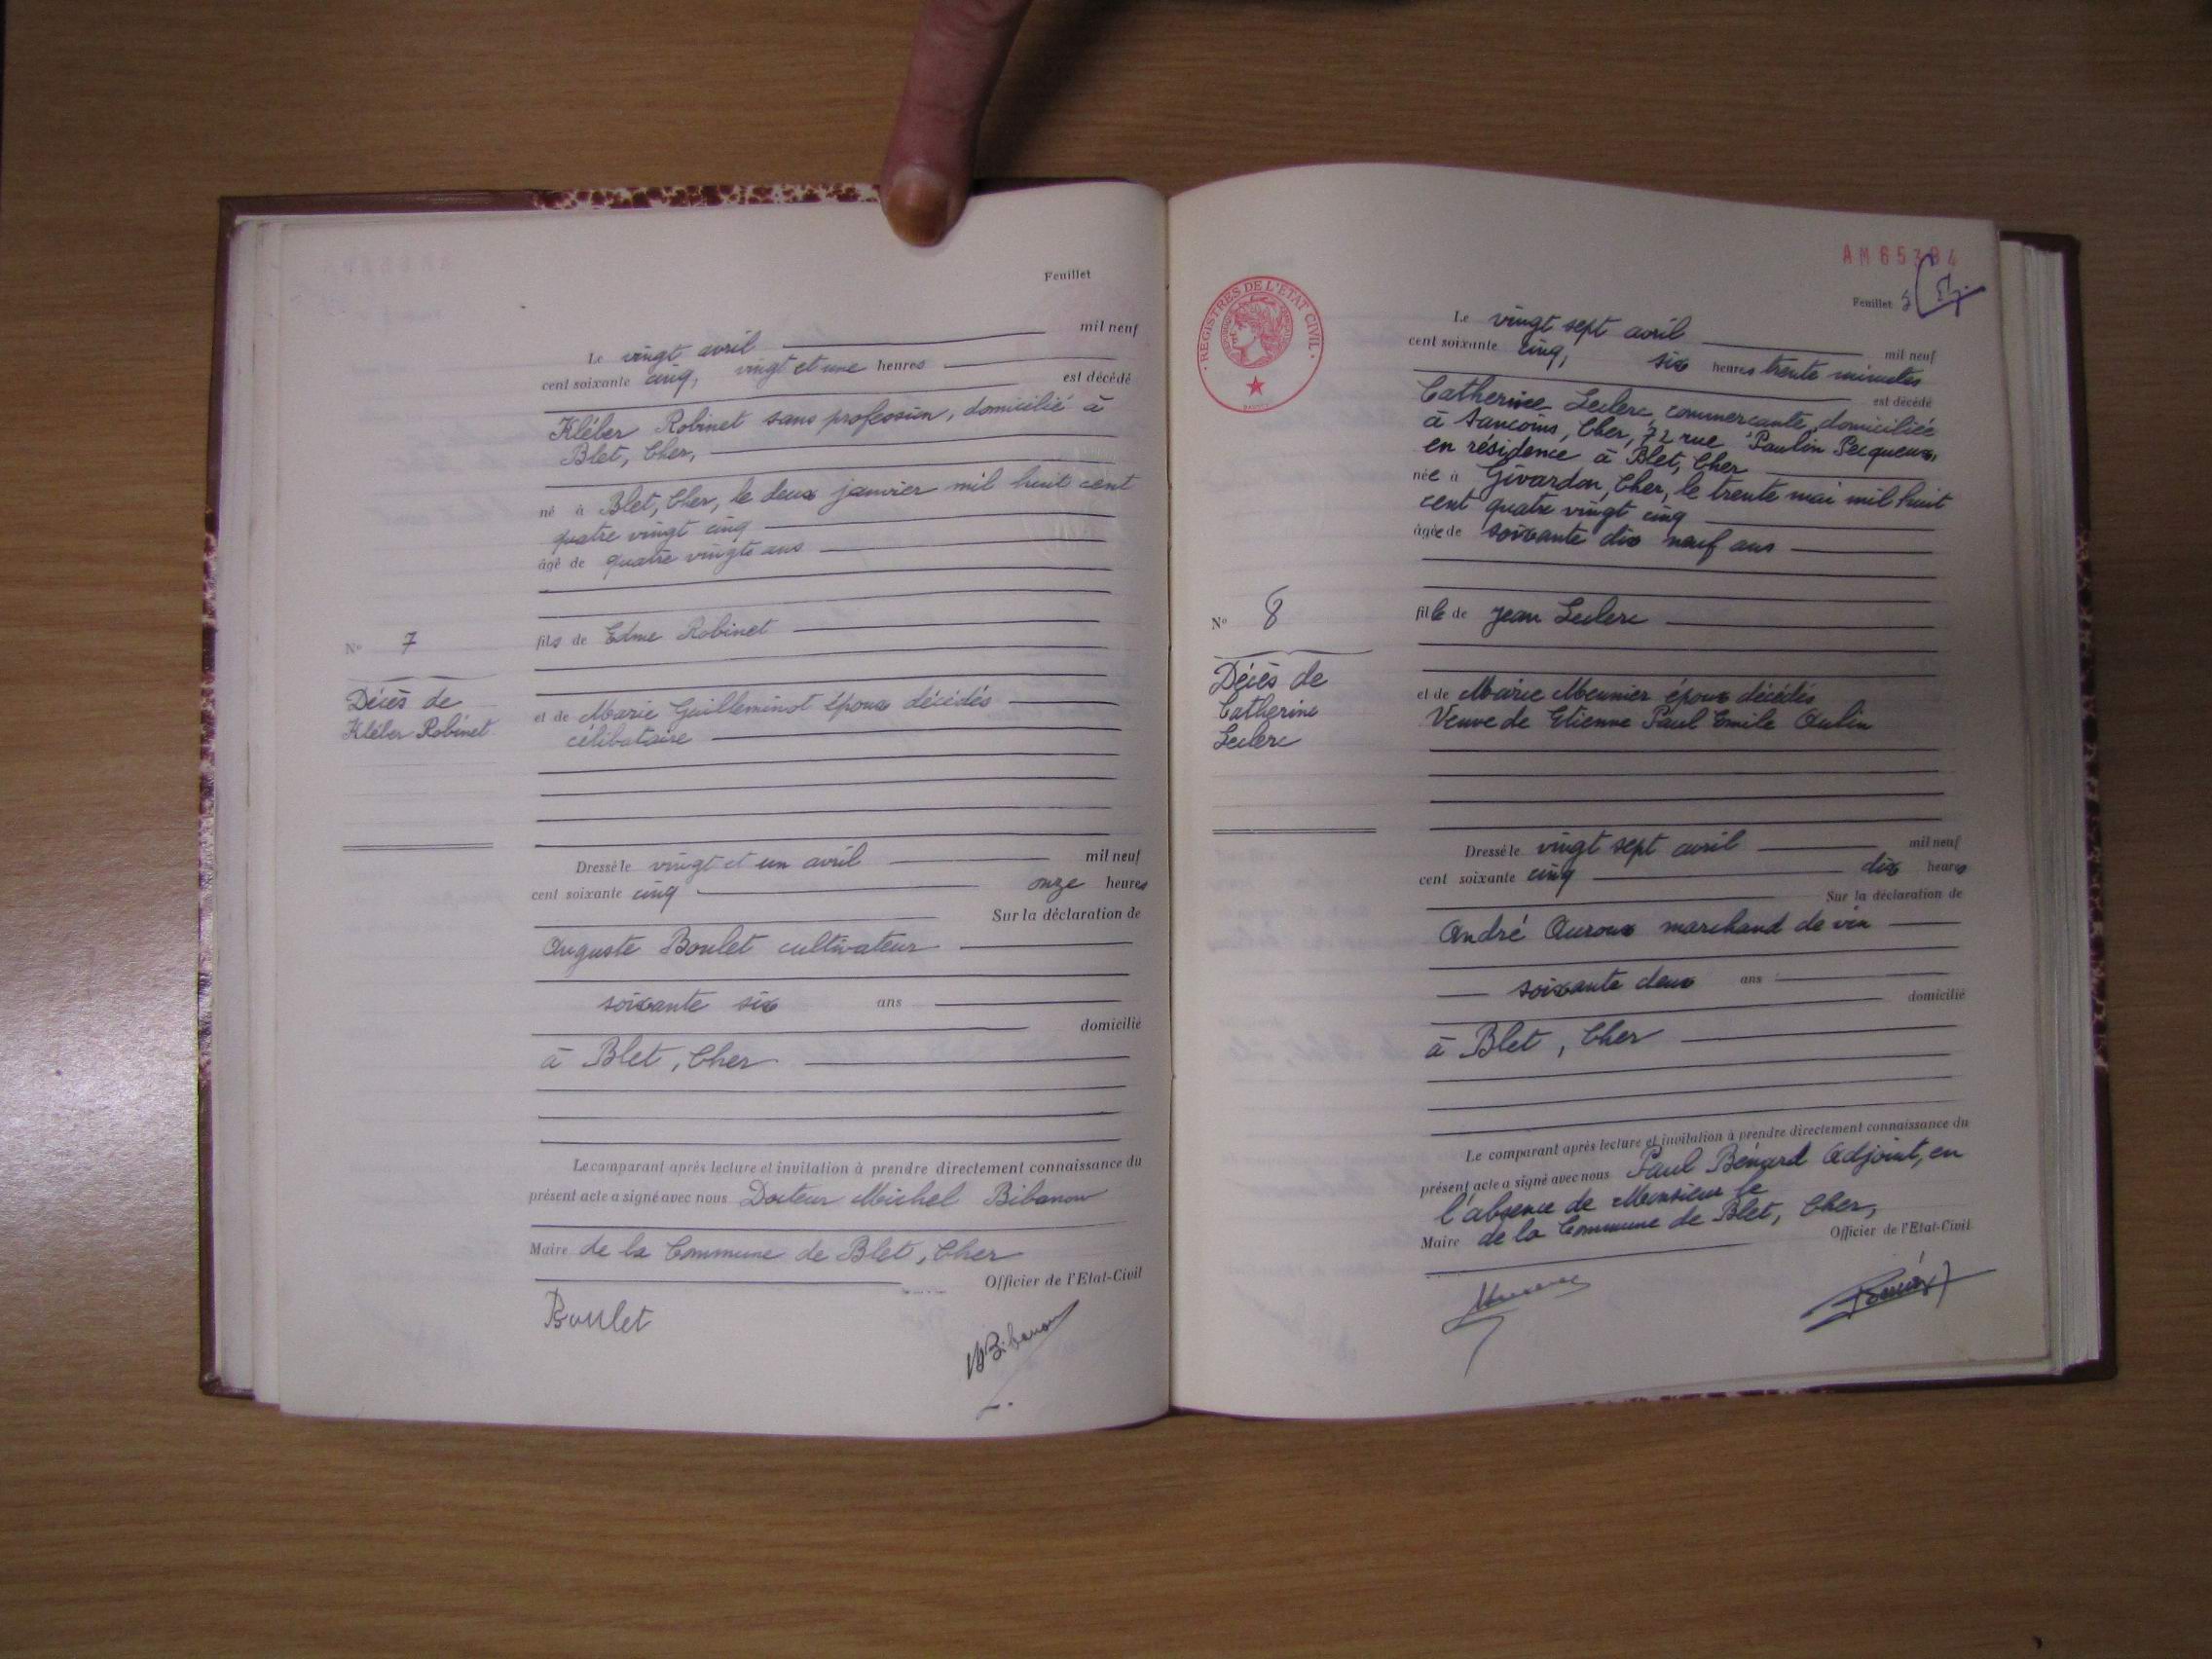 Feuillet
Le vingt avril mil neuf
cent soixante cinq, vingt et une heures
est décédé
Kléber Robinet sans profession, domicilié à
Blet, Cher,
né à Blet, Cher, le deux janvier mil huit cent
quatre vingt cinq
âgé de quatre vingts ans
N° 7
fils de Edme Robinet
Décès de
Kléber Robinet
et de Marie Guilleminot époux décédés
célibataire
Dressé le vingt et un avril mil neuf
cent soixante cinq onze heures
Sur la déclaration de
Auguste Boulet cultivateur
soixante six ans
domicilié
à Blet, Cher
Le comparant après lecture et invitation à prendre directement connaissance du
présent acte a signé avec nous Docteur Michel Bibanow
Maire de la Commune de Blet, Cher
Officier de l'Etat-Civil
Boulet
MBibanow
REGISTRES DE L'ETAT CIVIL
Feuillet 5
Le vingt sept avril mil neuf
cent soixante cinq, six heures trente minutes
est décédé
Catherine Leclerc, commerçante, domiciliée
à Sancoins, Cher, 72 rue Paulin Pecqueux,
en résidence à Blet, Cher
née à Givardon, Cher, le trente mai mil huit
cent quatre vingt cinq
âgée de soixante dix neuf ans
N° 8
fille de Jean Leclerc
Décès de
Catherine
Leclerc
et de Marie Meunier époux décédés
Veuve de Etienne Paul Emile Aulin
Dressé le vingt sept avril mil neuf
cent soixante cinq dix heures
Sur la déclaration de
André Auroux marchand de vin
soixante deux ans
domicilié
à Blet, Cher
Le comparant après lecture et invitation à prendre directement connaissance du
présent acte a signé avec nous Paul Bénard Adjoint, en
l'absence de Monsieur le
Maire de la Commune de Blet, Cher,
Officier de l'Etat-Civil